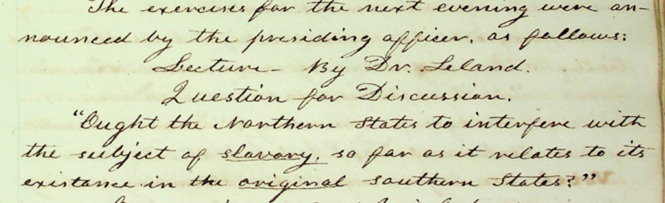 The exercises for the next evening were an-
nounced by the presiding officer, as follows:
Lecture - By Dr. Leland.
Question for Discussion.
"Ought the Northern States to interfere with
the subject of slavery, so far as it relates to its
existance in the original southern States?"